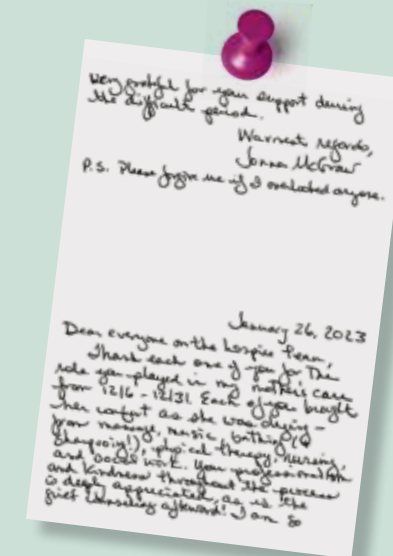 very grateful for your support during
the difficult period.
Warmest regards,
McGraw
P.S. Please forgive me if I overlooked anyone.
January 26, 2023
Dear everyone on the hospice team,
Thank each one of you for the
role you played in my mother's care
from 12/6 - 12/31. Each of you brought
her comfort as she was dying -
from massage, music, bathing (&
shampooing!), physical therapy, nursing,
and social work. Your professionalism
and kindness throughout the process
is deeply appreciated, as is the
grief counseling afterward! I am so